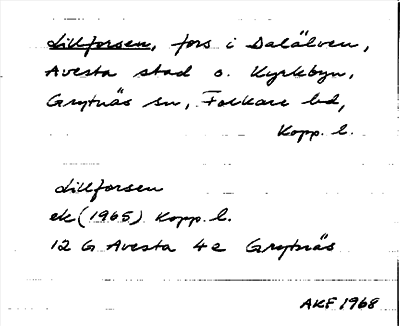 Lillforsen, fors i Dalälven,
Avesta stad o. Kyrkbyn,
Grytnäs sn, Folkare hd,
Kopp. l.
Lillforsen
ek (1965) Kopp. l.
12 G Avesta 4e Grytnäs
AKF 1968